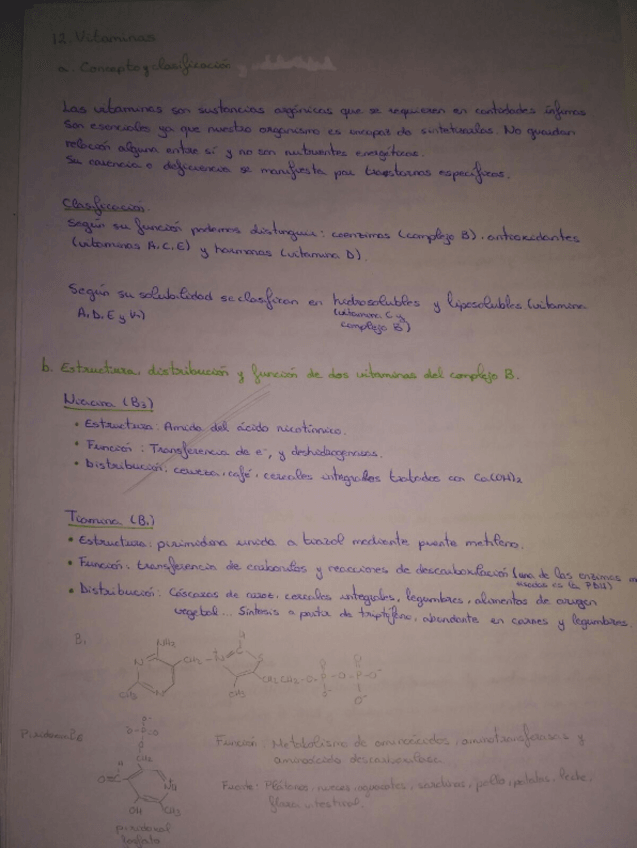 12. Vitaminas
a. Concepto y clasificación
Las vitaminas son sustancias orgánicas que se requieren en cantidades ínfimas
Son esenciales ya que nuestro organismo es incapaz de sintetizarlas. No guardan
relación alguna entre sí y no son nutrientes energéticos.
Su carencia o deficiencia se manifiesta por trastornos específicos.
Clasificación.
Según su función podemos distinguir: coenzimas (complejo B), antioxidantes
(vitaminas A, C, E) y hormonas (vitamina D).
Según su solubilidad se clasifican en hidrosolubles y liposolubles (vitamina
A, D, E y K) (vitamina C y
complejo B)
b. Estructura, distribución y función de dos vitaminas del complejo B.
Niacina (B3)
• Estructura: Amida del ácido nicotínico.
• Función: Transferencia de e-, y deshidrogenasas.
• Distribución: cerveza, café, cereales integrales tratados con Ca(OH)2
Tiamina (B1)
• Estructura: pirimidina unida a tiazol mediante puente metileno.
• Función: transferencia de carbonilos y reacciones de descarboxilación (una de las enzimas
es la PDH)
• Distribución: Cáscaras de arroz, cereales integrales, legumbres, alimentos de origen
vegetal... Síntesis a partir de triptófano, abundante en carnes y legumbres.
B1
NH2
N CH2 N S
CH3 N CH3 CH2CH2-O-P-O-P-O-
Función: Metabolismo de aminoácidos, aminotransferasas y
aminoácido descarboxilasa.
Fuente: Plátanos, nueces, aguacates, sardinas, pollo, patatas, leche,
flora intestinal.
OH CH3
piridoxal
fosfato